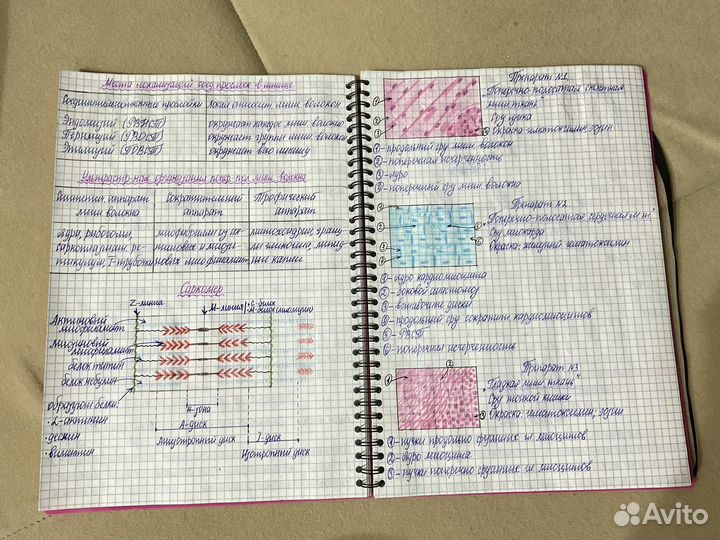 Места локализаций соед. прослоек в мышце
Соединительнотканные прослойки
Локал. относит. мыш. волокон
Эндомизий (РВНСТ)
окружает каждое мыш. волокно
Перимизий
окружает группы мыш. волокон
Эпимизий
окружает всю мышцу
Ультраструк-ная организация попер. пол. мыш. волокна
аппарат
мыш. волокна
Сократительный
аппарат
Трофический
аппарат
ядра, рибосомы,
саркоплазмат. ре-
тикулум, Т-трубочки
миофибриллы из ак-
тиновых и миози-
новых миофиламент.
митохондрии, грану-
лы гликогена,
ные капли.
Саркомер
Z-линия
М-линия
Актиновый
миофиламент
Миозиновый
миофиламент
белок титин
белок небулин
образуют белки:
• α-актинин
• десмин
• виментин
H-зона
A-диск
Анизотропный диск
I-диск
Изотропный диск
Препарат №1
"Поперечно-полосатая скелетная
мыш. ткань"
Срез языка
Окраска: гематоксилин, эозин
① - продольный срез мыш. волокон
② - поперечная исчерченность
③ - ядро
④ - поперечный срез мыш. волокна
Препарат №2
"Поперечно-полосатая сердечная м. т."
Срез миокарда
Окраска: железный гематоксилин
① - ядро кардиомиоцита
② - боковой анастомоз
③ - вставочные диски
④ - продольный срез сократит. кардиомиоцитов
⑤ - РВСТ
⑥ - поперечная исчерченность
Препарат №3
"Гладкая мыш. ткань"
Срез тонкой кишки
Окраска: гематоксилин; эозин
① - пучки продольно срезанных гл. миоцитов
② - ядро миоцита
③ - пучки поперечно срезанных гл. миоцитов
Avito